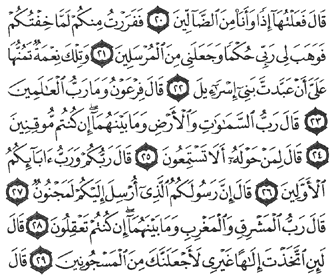 قَالَ فَعَلْتُهَآ إِذًا وَأَنَا۠ مِنَ ٱلضَّآلِّينَ ٢٠ فَفَرَرْتُ مِنكُمْ لَمَّا خِفْتُكُمْ
فَوَهَبَ لِى رَبِّى حُكْمًا وَجَعَلَنِى مِنَ ٱلْمُرْسَلِينَ ٢١ وَتِلْكَ نِعْمَةٌ تَمُنُّهَا
عَلَىَّ أَنْ عَبَّدتَّ بَنِىٓ إِسْرَٰٓءِيلَ ٢٢ قَالَ فِرْعَوْنُ وَمَا رَبُّ ٱلْعَٰلَمِينَ
٢٣ قَالَ رَبُّ ٱلسَّمَٰوَٰتِ وَٱلْأَرْضِ وَمَا بَيْنَهُمَآ ۖ إِن كُنتُم مُّوقِنِينَ
٢٤ قَالَ لِمَنْ حَوْلَهُۥٓ أَلَا تَسْتَمِعُونَ ٢٥ قَالَ رَبُّكُمْ وَرَبُّ ءَابَآئِكُمُ
ٱلْأَوَّلِينَ ٢٦ قَالَ إِنَّ رَسُولَكُمُ ٱلَّذِىٓ أُرْسِلَ إِلَيْكُمْ لَمَجْنُونٌ ٢٧
قَالَ رَبُّ ٱلْمَشْرِقِ وَٱلْمَغْرِبِ وَمَا بَيْنَهُمَآ ۖ إِن كُنتُمْ تَعْقِلُونَ ٢٨ قَالَ
لَئِنِ ٱتَّخَذْتَ إِلَٰهًا غَيْرِى لَأَجْعَلَنَّكَ مِنَ ٱلْمَسْجُونِينَ ٢٩ قَالَ